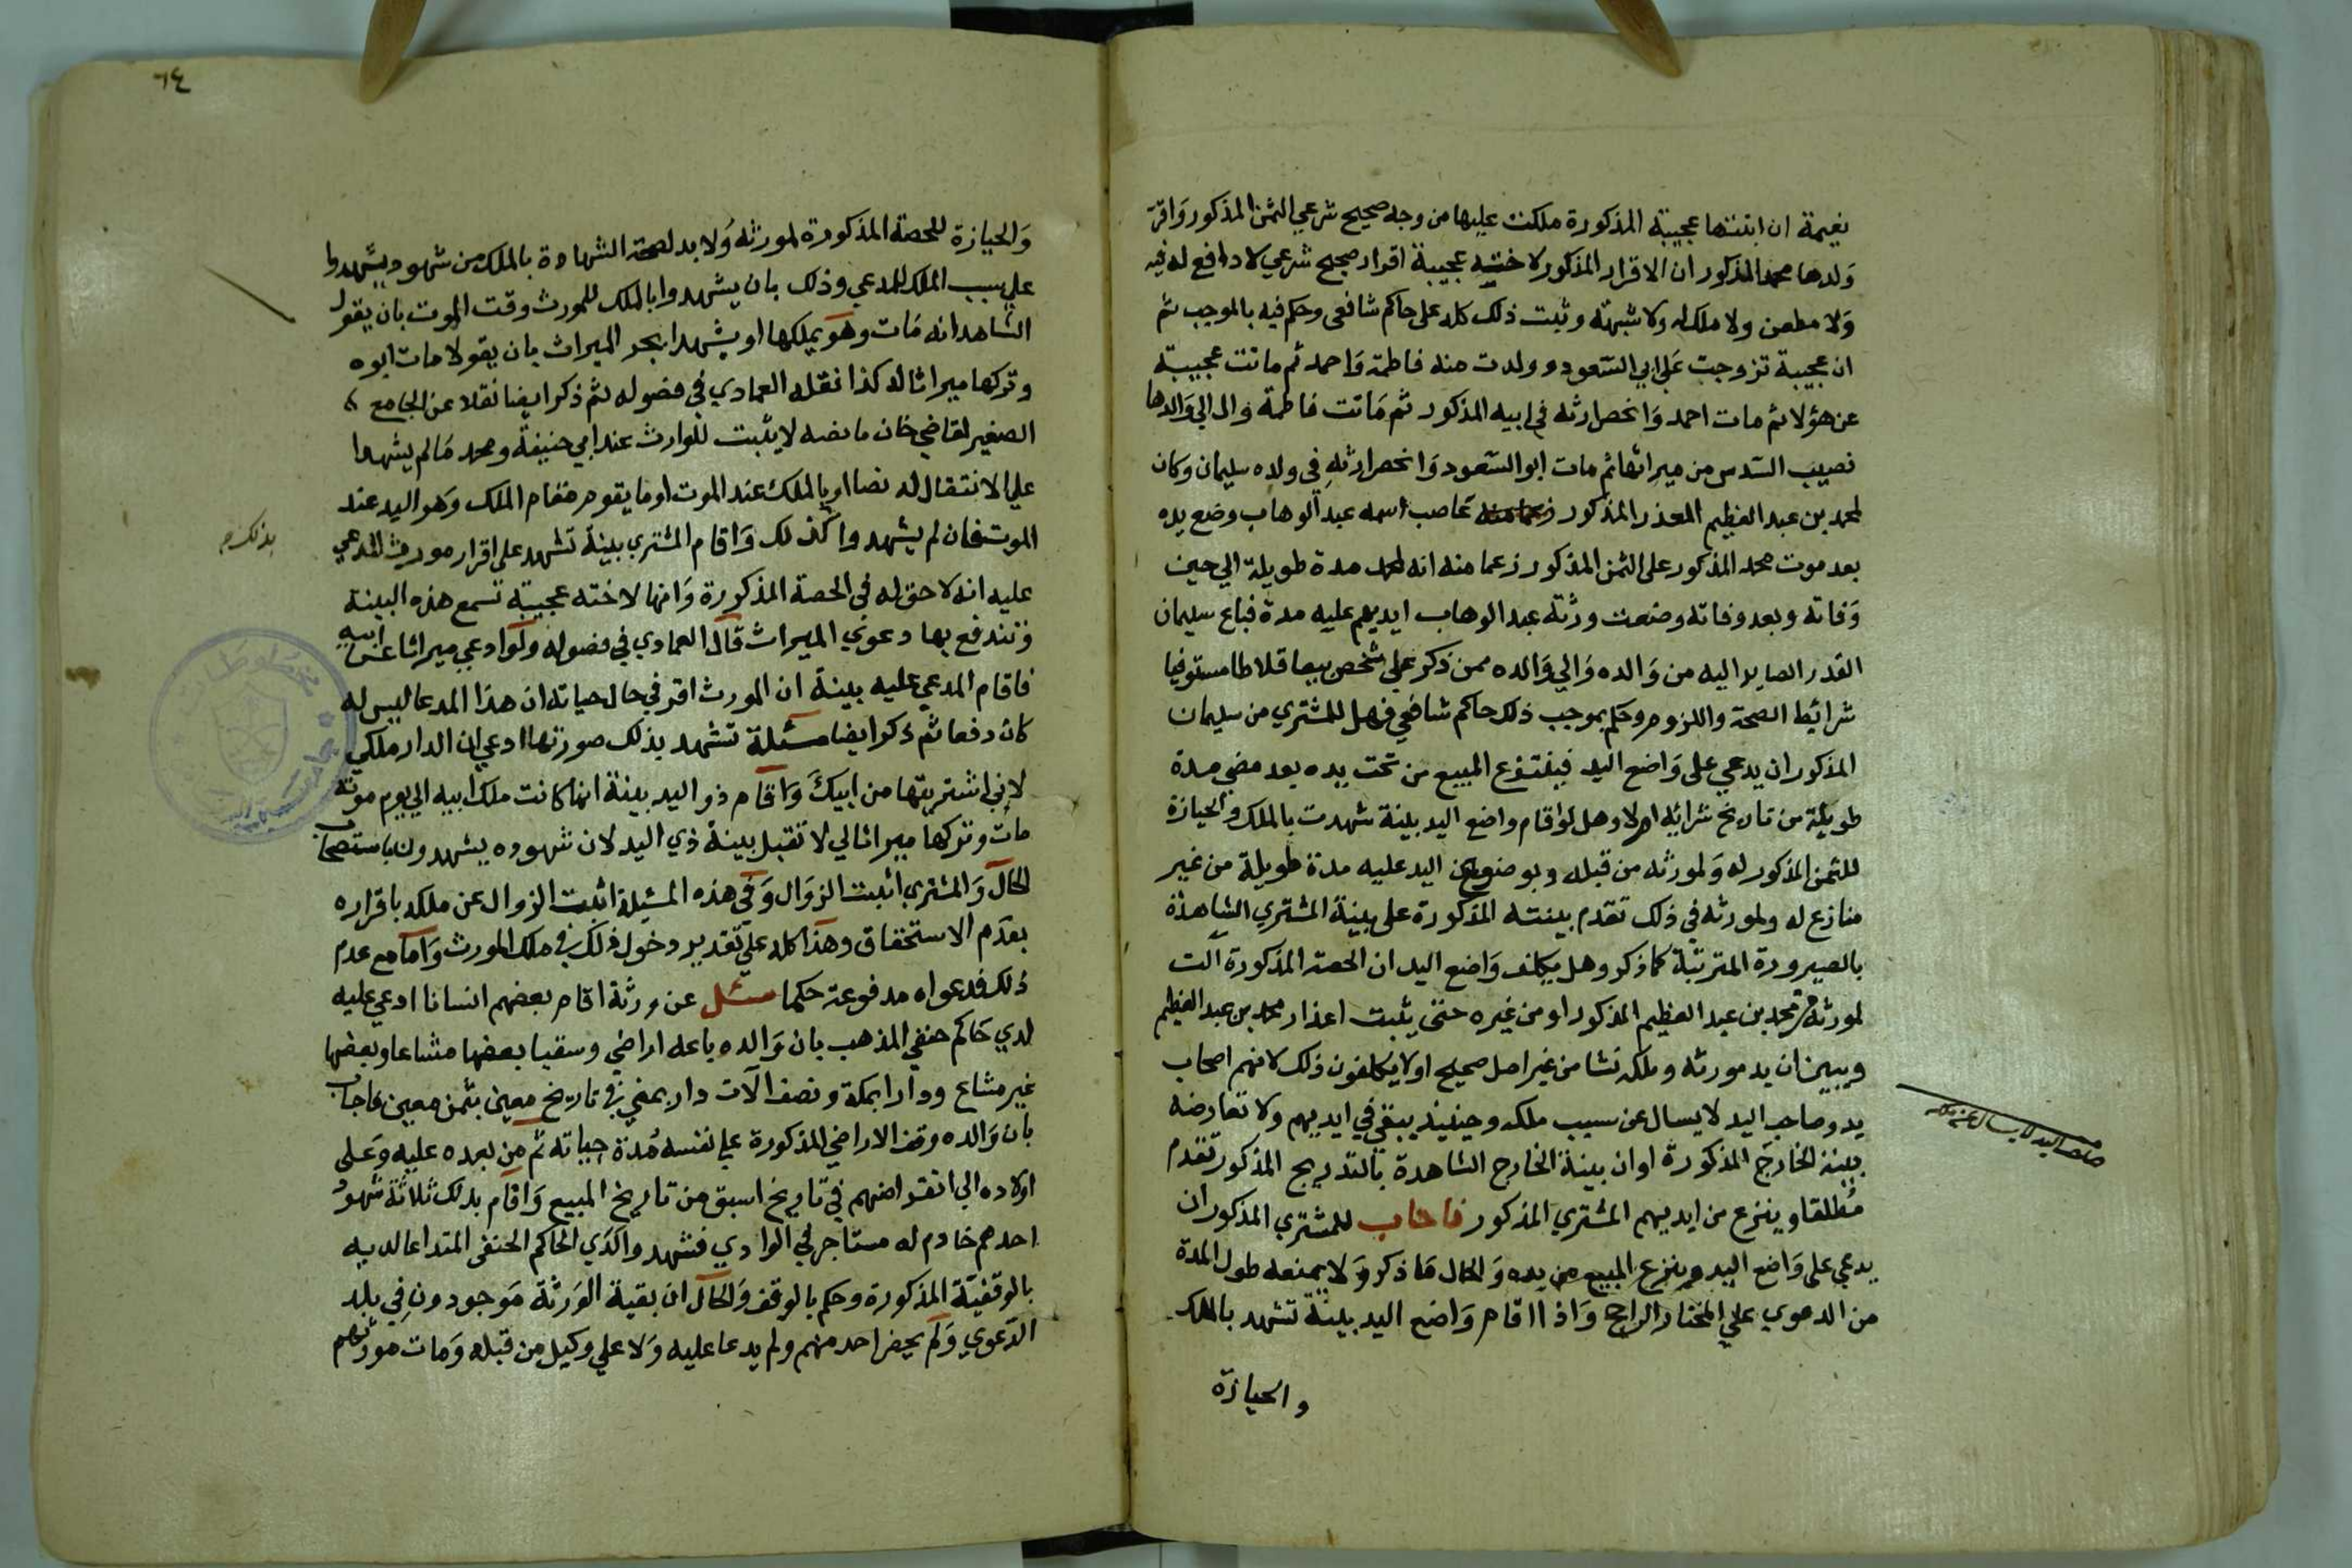 نعيمة ان ابنتها عجيبة المذكورة ملكت عليها من وجه صحيح شرعي الثمن المذكور واقر
ولدها محمد المذكور ان الاقرار المذكور لاخته عجيبة اقرار صحيح شرعي لا دافع له فيه
ولا مطعن ولا ملك له ولا شبهة وثبت ذلك كله على حاكم شافعي وحكم فيه بالموجب ثم
ان عجيبة تزوجت علي ابي السعود وولدت منه فاطمة واحمد ثم ماتت عجيبة
عن هؤلا ثم مات احمد وانحصر ارثه في ابيه المذكور ثم ماتت فاطمة وال الي والدها
نصيب السدس من ميراثها ثم مات ابو السعود وانحصر ارثه في ولده سليمان وكان
لمحمد بن عبد العظيم المعذر المذكور غاصب اسمه عبد الوهاب وضع يده
بعد موت محمد المذكور على الثمن المذكور زعما منه انه لمحمد مدة طويلة الي حين
وفاته وبعد وفاته وضعت ورثة عبد الوهاب ايديهم عليه مدة فباع سليمان
القدر الصاير اليه من والده والي والده ممن ذكر علي شخص بيعا قلاطا مستوفيا
شرائط الصحة واللزوم وحكم بموجب ذلك حاكم شافعي فهل للمشتري من سليمان
المذكور ان يدعي على واضع اليد فينتزع المبيع من تحت يده بعد مضي مدة
طويلة من تاريخ شرائه ام لا وهل لو اقام واضع اليد بينة شهدت بالملك والحيازة
للثمن المذكور له ولمورثه من قبله وبوضع اليد عليه مدة طويلة من غير
منازع له ولمورثه في ذلك تقدم بينته المذكورة على بينة المشتري الشاهدة
بالصيرورة المترتبة كما ذكر وهل يكلف واضع اليد ان الحصة المذكورة آلت
لمورثه من محمد بن عبد العظيم المذكور او من غيره حتى يثبت اعذار محمد بن عبد العظيم
ويبين ان يد مورثه وملكه نشا من غير اصل صحيح او لا يكلفون ذلك لانهم اصحاب
يد وصاحب اليد لا يسال عن سبب ملكه وحينيذ يبقي في ايديهم ولا تعارضه
بينة الخارج المذكورة او ان بينة الخارج الشاهدة بالتدريج المذكور تقدم
مطلقا وينزع من ايديهم المشتري المذكور فاجاب للمشتري المذكور ان
يدعي على واضع اليد وينزع المبيع من يده والحال ما ذكر ولا يمنعه طول المدة
من الدعوي علي المختار الراجح واذا اقام واضع اليد بينة تشهد بالملك
والحيازة
صاحب اليد لا يسال عن ملكه
٦٤
والحيازة للحصة المذكورة لمورثه ولا بد لصحة الشهادة بالملك من شهود يشهدوا
علي سبب الملك للمدعي وذلك بان يشهدوا بالملك للمورث وقت الموت بان يقول
الشاهد انه مات وهو يملكها او يشهدا بجر الميراث بان يقولا مات ابوه
وتركها ميراثا له كذا نقله العمادي في فصوله ثم ذكر ايضا نقلا عن الجامع
الصغير لقاضي خان ما نصه لا يثبت للوارث عند ابي حنيفة ومحمد ما لم يشهدا
علي الانتقال له نصا او بالملك عند الموت او ما يقوم مقام الملك وهو اليد عند
الموت فان لم يشهدوا كذلك واقام المشتري بينة تشهد على اقرار مورث المدعي
عليه انه لا حق له في الحصة المذكورة وانها لاخته عجيبة تسمع هذه البينة
وتندفع بها دعوي الميراث قال العمادي في فصوله ولو ادعي ميراثا عن ابيه
فاقام المدعي عليه بينة ان المورث اقر في حال حياته ان هذا المدعا ليس له
كان دفعا ثم ذكر ايضا مسئلة تشهد بذلك صورتها ادعي ان الدار ملكي
لاني اشتريتها من ابيك واقام ذو اليد بينة انها كانت ملك ابيه الي يوم موته
مات وتركها ميراثا لي لا تقبل بينة ذي اليد لان شهوده يشهدون باستصحاب
الحال والمشتري اثبت الزوال وفي هذه المسئلة اثبت الزوال عن ملكه باقراره
بعدم الاستحقاق وهذا كله علي تقدير دخول ذلك في ملك المورث واما مع عدم
ذلك فدعواه مدفوعة حكما سئل عن ورثة اقام بعضهم انسانا ادعي عليه
لدي حاكم حنفي المذهب بان والده باعه اراضي وسقيا بعضها مشاعا وبعضها
غير مشاع ودارا بمكة ونصف آلات دار بمني في تاريخ معين بثمن معين فاجاب
بان والده وقف الاراضي المذكورة علي نفسه مدة حياته ثم من بعده عليه وعلى
اولاده الي انقراضهم في تاريخ اسبق من تاريخ المبيع واقام بذلك ثلاثة شهود
احدهم خادم له مستاجر في الوادي فشهدوا لدي الحاكم الحنفي المتداعا لديه
بالوقفية المذكورة وحكم بالوقف والحال ان بقية الورثة موجودون في بلد
الدعوي ولم يحضر احد منهم ولم يدعا عليه ولا علي وكيل من قبله ومات مورثهم
بذلك